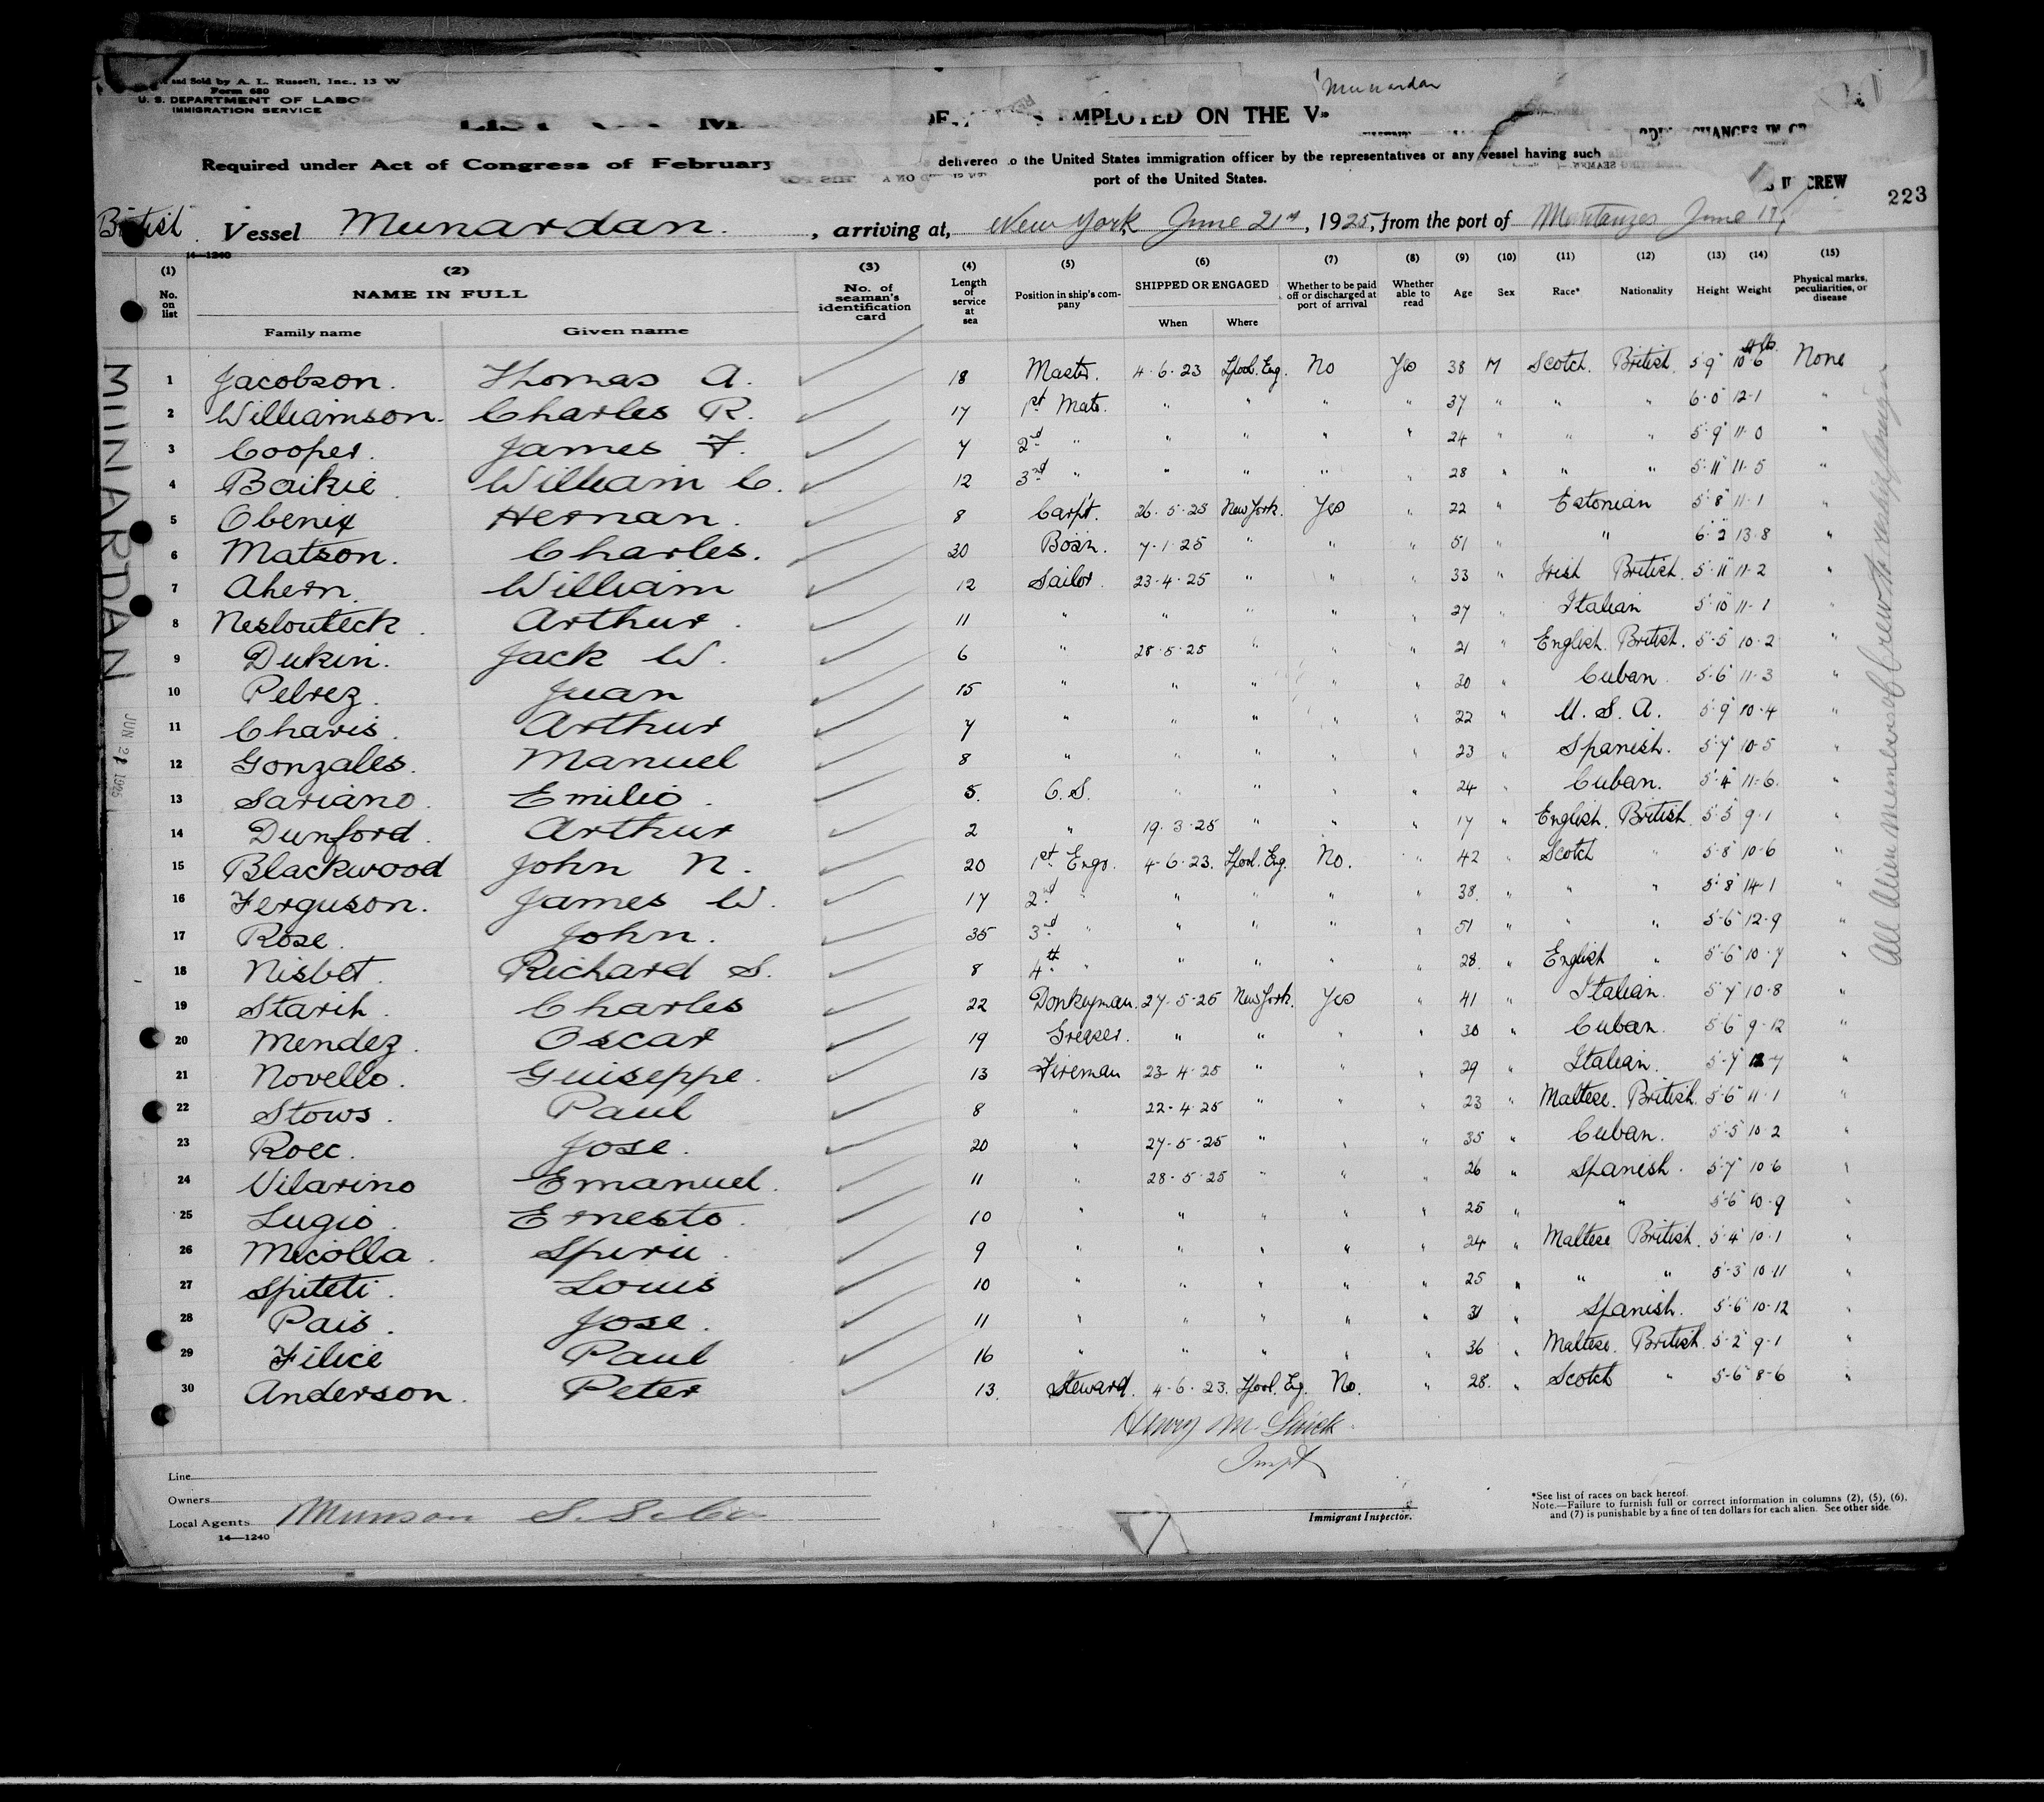 Munardan
and Sold by A. L. Russell, Inc., 13 W
Form 680
U. S. DEPARTMENT OF LABOR
IMMIGRATION SERVICE
EMPLOYED ON THE
CHANGES IN
Required under Act of Congress of February
delivered to the United States immigration officer by the representatives or any vessel having such
port of the United States.
CREW
223
British Vessel Munardan. , arriving at, New York, June 21st, 1925, from the port of Mantanzas June 17
14—1240
(1) (2) (3) (4) (5) (6) (7) (8) (9) (10) (11) (12) (13) (14) (15)
No. on list NAME IN FULL No. of seaman's identification card Length of service at sea Position in ship's company SHIPPED OR ENGAGED Whether to be paid off or discharged at port of arrival Whether able to read Age Sex Race* Nationality Height Weight Physical marks, peculiarities, or disease
Family name Given name When Where
1 Jacobson. Thomas A. 18 Master. 4.6.23 Lpool. Eng. No Yes 38 M Scotch. British. 5'9" 10·6 None
2 Williamson. Charles R. 17 1st Mate. " " " " 37 " " " 6·0" 12·1 "
3 Cooper. James F. 7 2nd " " " " " 24 " " " 5'9" 11·0 "
4 Baikie. William C. 12 3rd " " " " " 28 " " " 5'11" 11·5 "
5 Hernan. 8 Carpt. 26.5.25 New York. Yes " 22 " Estonian 5'8" 11·1 "
6 Matson. Charles. 30 Bosn. 7.1.25 " " " 51 " " 6'2" 13·8 "
7 Ahern. William 12 Sailor. 23.4.25 " " " 33 " Irish British. 5'11" 11·2 "
8 Neslouteck. Arthur. 11 " " " " " 27 " Italian 5'10" 11·1 "
9 Dukin. Jack W. 6 " 28.5.25 " " " 21 " English. British. 5'5" 10·2 "
10 Pelrez. Juan 15 " " " " " 30 " Cuban. 5'6" 11·3 "
11 Charis. Arthur 7 " " " " " 22 " U. S. A. 5'9" 10·4 "
12 Gonzales. Manuel 8 " " " " " 23 " Spanish. 5'7" 10·5 "
13 Sariano. Emilio. 5. O.S. " " " " 24 " Cuban. 5'4" 11·6. "
14 Dunford. Arthur 2 " 19.3.25 " " " 17 " English. British. 5'5" 9·1 "
15 Blackwood John N. 20 1st Engr. 4.6.23. Lpool. Eng. No. " 42 " Scotch " 5'8" 10·6 "
16 Ferguson. James W. 17 2nd " " " " " 38. " " " 5'8" 14·1 "
17 Rose. John. 35 3rd " " " " " 51 " " " 5'6" 12·9 "
18 Nisbet. Richard S. 8 4th " " " " " 28. " English " 5'6" 10·7 "
19 Starih. Charles 22 Donkeyman. 27.5.25 New York. Yes " 41 " Italian. 5'7" 10·8 "
20 Mendez. Oscar 19 Greaser. " " " " 30 " Cuban. 5'6" 9·12 "
21 Novello. Guiseppe. 13 Fireman 23.4.25 " " " 29 " Italian. 5'7" "
22 Stows. Paul 8 " 22.4.25 " " " 23 " Maltese. British. 5'6" 11·1 "
23 Roec. Jose. 20 " 27.5.25 " " " 35 " Cuban. 5'5" 10·2 "
24 Vilarino Emanuel. 11 " 28.5.25 " " " 26 " Spanish. 5'7" 10·6 "
25 Lugio. Ernesto. 10 " " " " " 25 " " 5'6" 10·9 "
26 Micolla. Spirie. 9 " " " " " 24 " Maltese British. 5'4" 10·1 "
27 Spiteti. Louis 10 " " " " " 25 " " " 5'3" 10·11 "
28 Pais. Jose. 11 " " " " " 31 " Spanish. 5'6" 10·12 "
29 Filice Paul 16 " " " " " 36 " Maltese. British. 5'2" 9·1 "
30 Anderson. Peter 13. Steward. 4.6.23. Lpool. Eg. No. " 28. " Scotch " 5'6" 8·6 "
MUNARDAN
JUN 21 1925
All Alien members of Crew
Henry M
Inspt
Line
Owners
Local Agents Munson S. S. Co.
14—1240
Immigrant Inspector.
*See list of races on back hereof.
Note.—Failure to furnish full or correct information in columns (2), (5), (6),
and (7) is punishable by a fine of ten dollars for each alien. See other side.